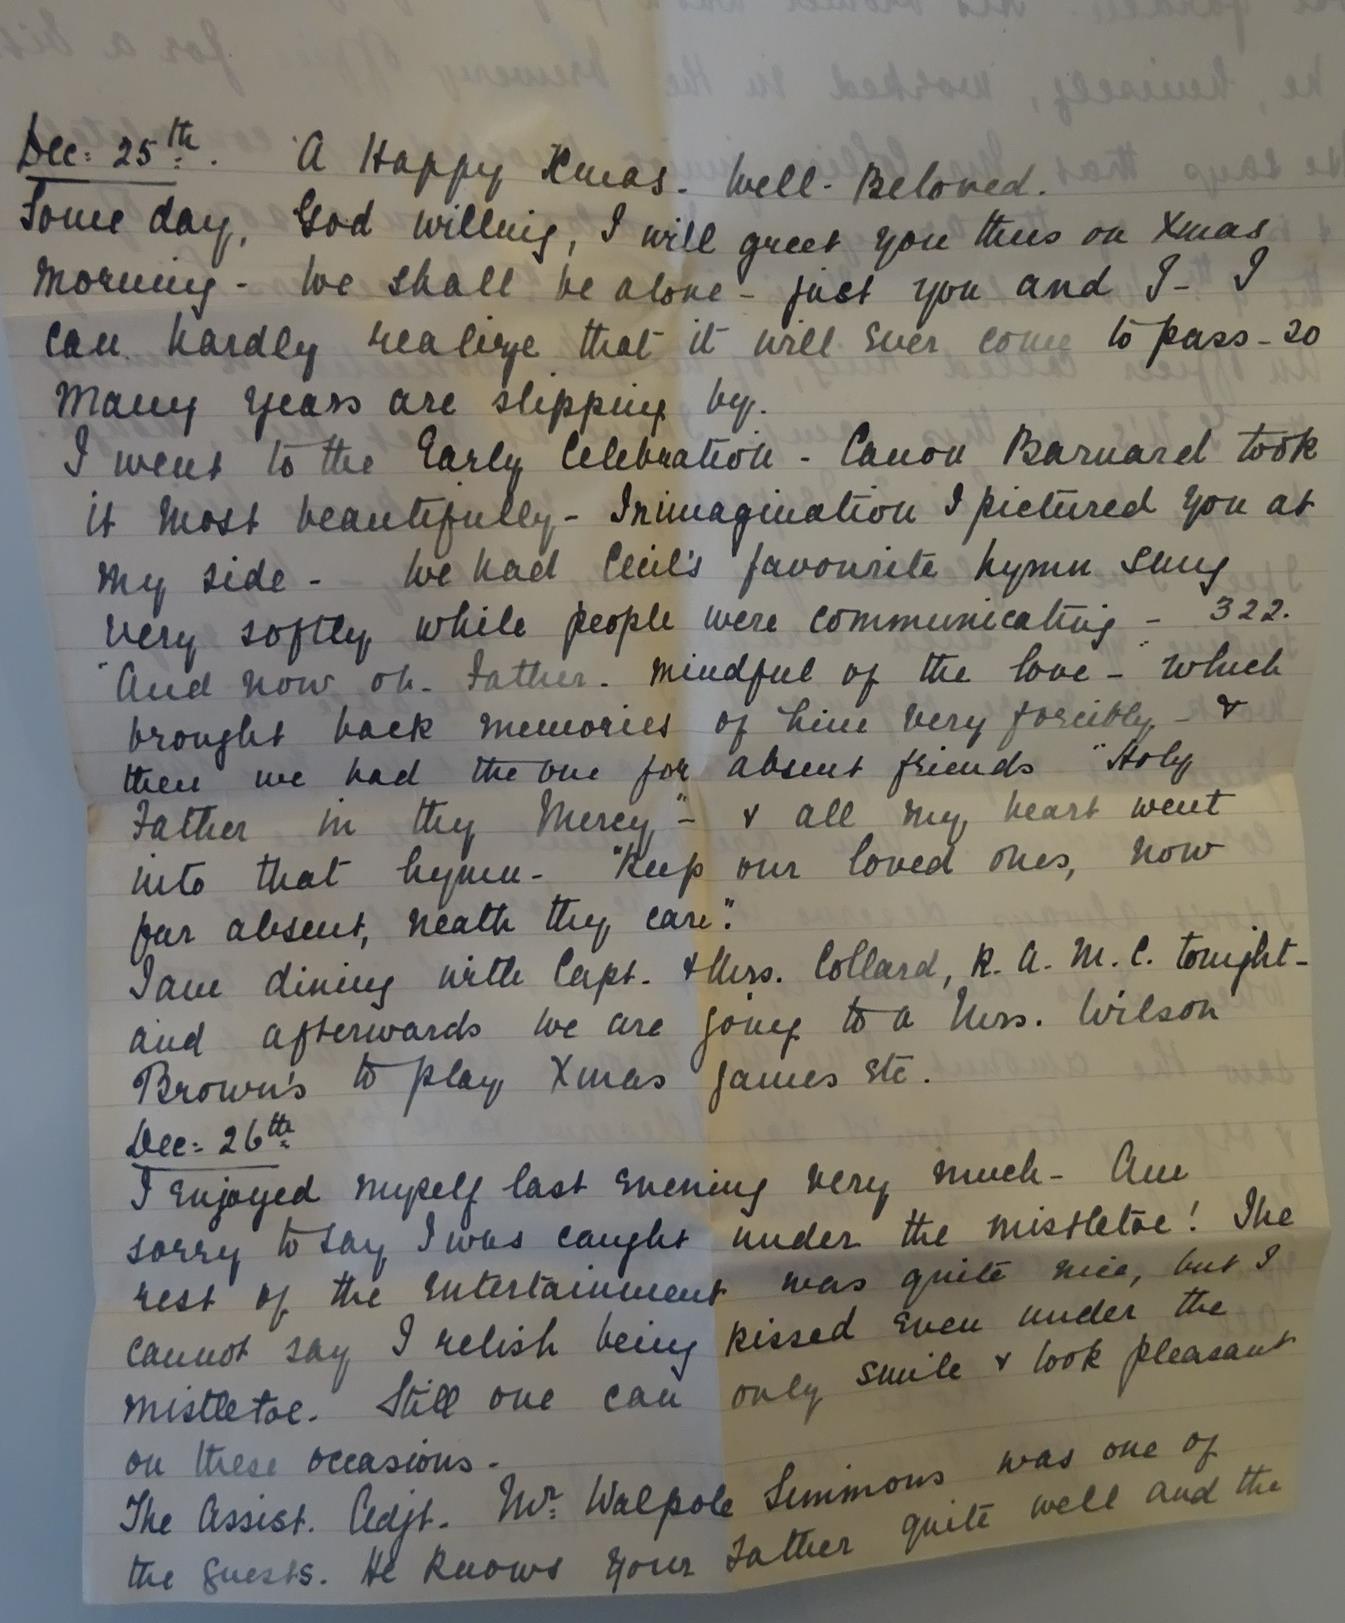 Dec: 25th. A Happy Xmas. Well-Beloved.
Some day, God willing, I will greet you thus on Xmas
morning - We shall be alone - just you and I - I
can hardly realize that it will ever come to pass - so
many years are slipping by.
I went to the Early Celebration - Canon Barnard took
it most beautifully - In imagination I pictured you at
my side - We had Cecil's favourite hymn sung
very softly while people were communicating - 322.
"And now oh. Father. mindful of the love -" which
brought back memories of him very forcibly - &
then we had the one for absent friends "Holy
Father in thy Mercy" - & all my heart went
into that hymn - "Keep our loved ones, now
far absent, neath thy care".
I am dining with Capt. & Mrs. Collard, R.A.M.C. tonight -
and afterwards we are going to a Mrs. Wilson
Brown's to play Xmas games etc.
Dec: 26th
I enjoyed myself last evening very much - Am
sorry to say I was caught under the mistletoe! The
rest of the entertainment was quite nice, but I
cannot say I relish being kissed even under the
mistletoe. Still one can only smile & look pleasant
on these occasions -
The Assist. Adjt. Mr. Walpole Simmons was one of
the guests. He knows your Father quite well and the